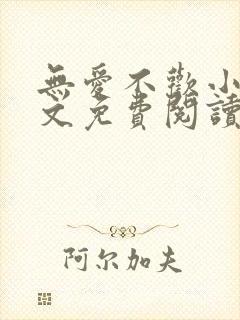 無愛不歡小
文免費閱讀
阿尔加夫